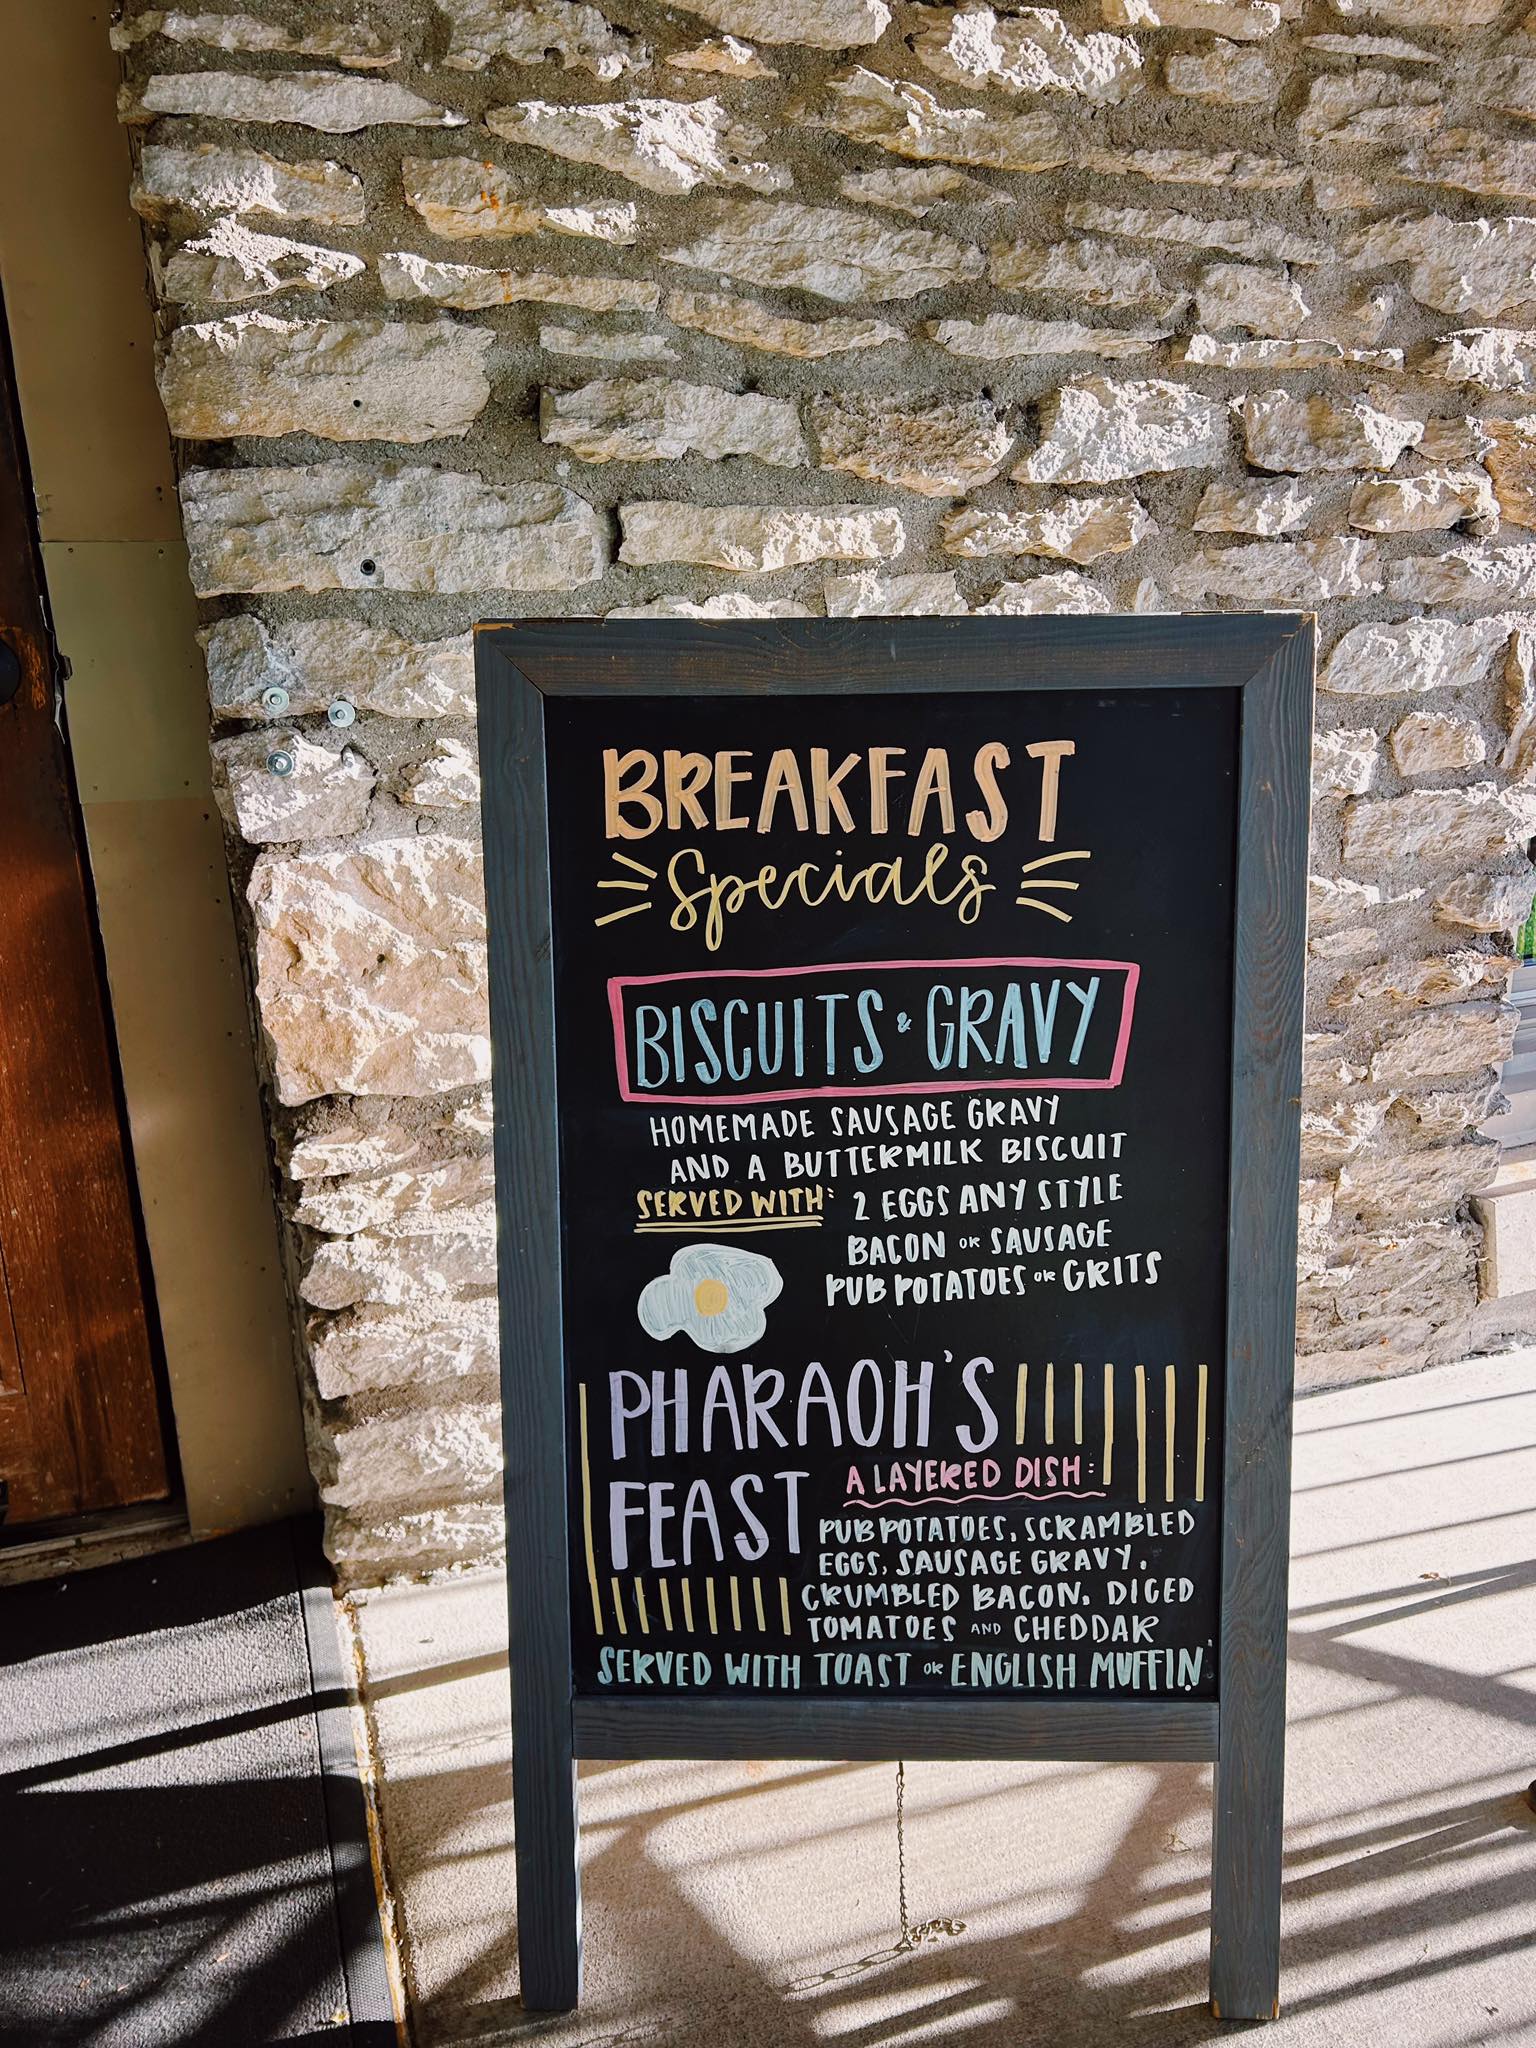 BREAKFAST
Specials
BISCUITS & GRAVY
HOMEMADE SAUSAGE GRAVY
AND A BUTTERMILK BISCUIT
SERVED WITH: 2 EGGS ANY STYLE
BACON OR SAUSAGE
PUB POTATOES OR GRITS
PHARAOH'S
FEAST
A LAYERED DISH:
PUB POTATOES, SCRAMBLED
EGGS, SAUSAGE GRAVY,
CRUMBLED BACON, DICED
TOMATOES AND CHEDDAR
SERVED WITH TOAST OR ENGLISH MUFFIN